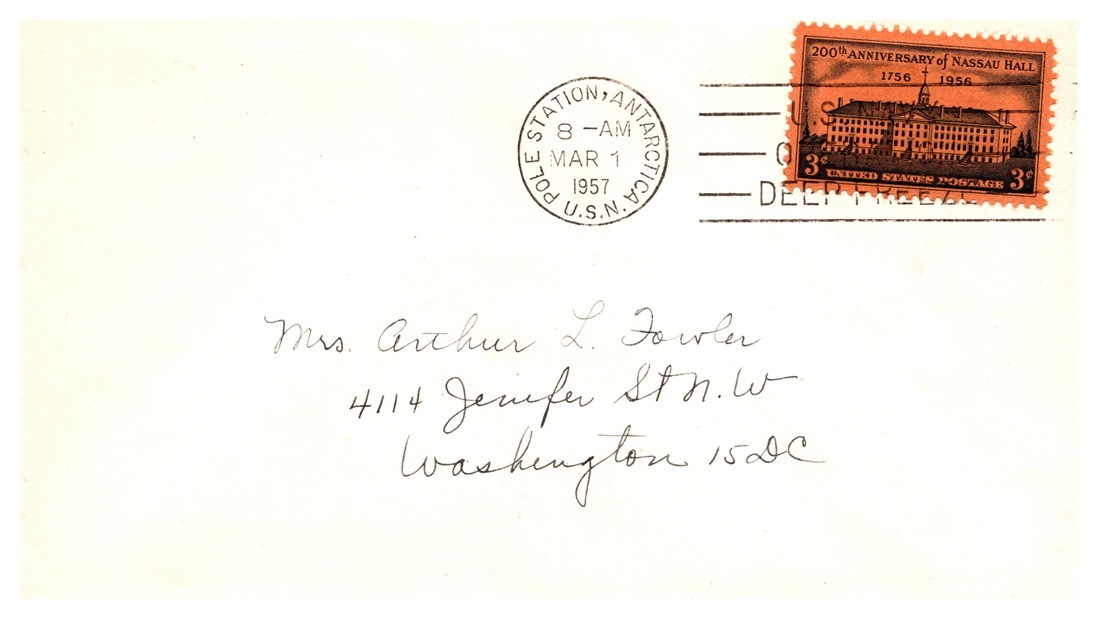 POLE STATION, ANTARCTICA
8 - AM
MAR 1
1957
U.S.N.
200th ANNIVERSARY of NASSAU HALL
1756 1956
3¢ UNITED STATES POSTAGE 3¢
U.S.
DEEP FREEZE
Mrs. Arthur L. Fowler
4114 Jenifer St N.W
Washington 15 DC